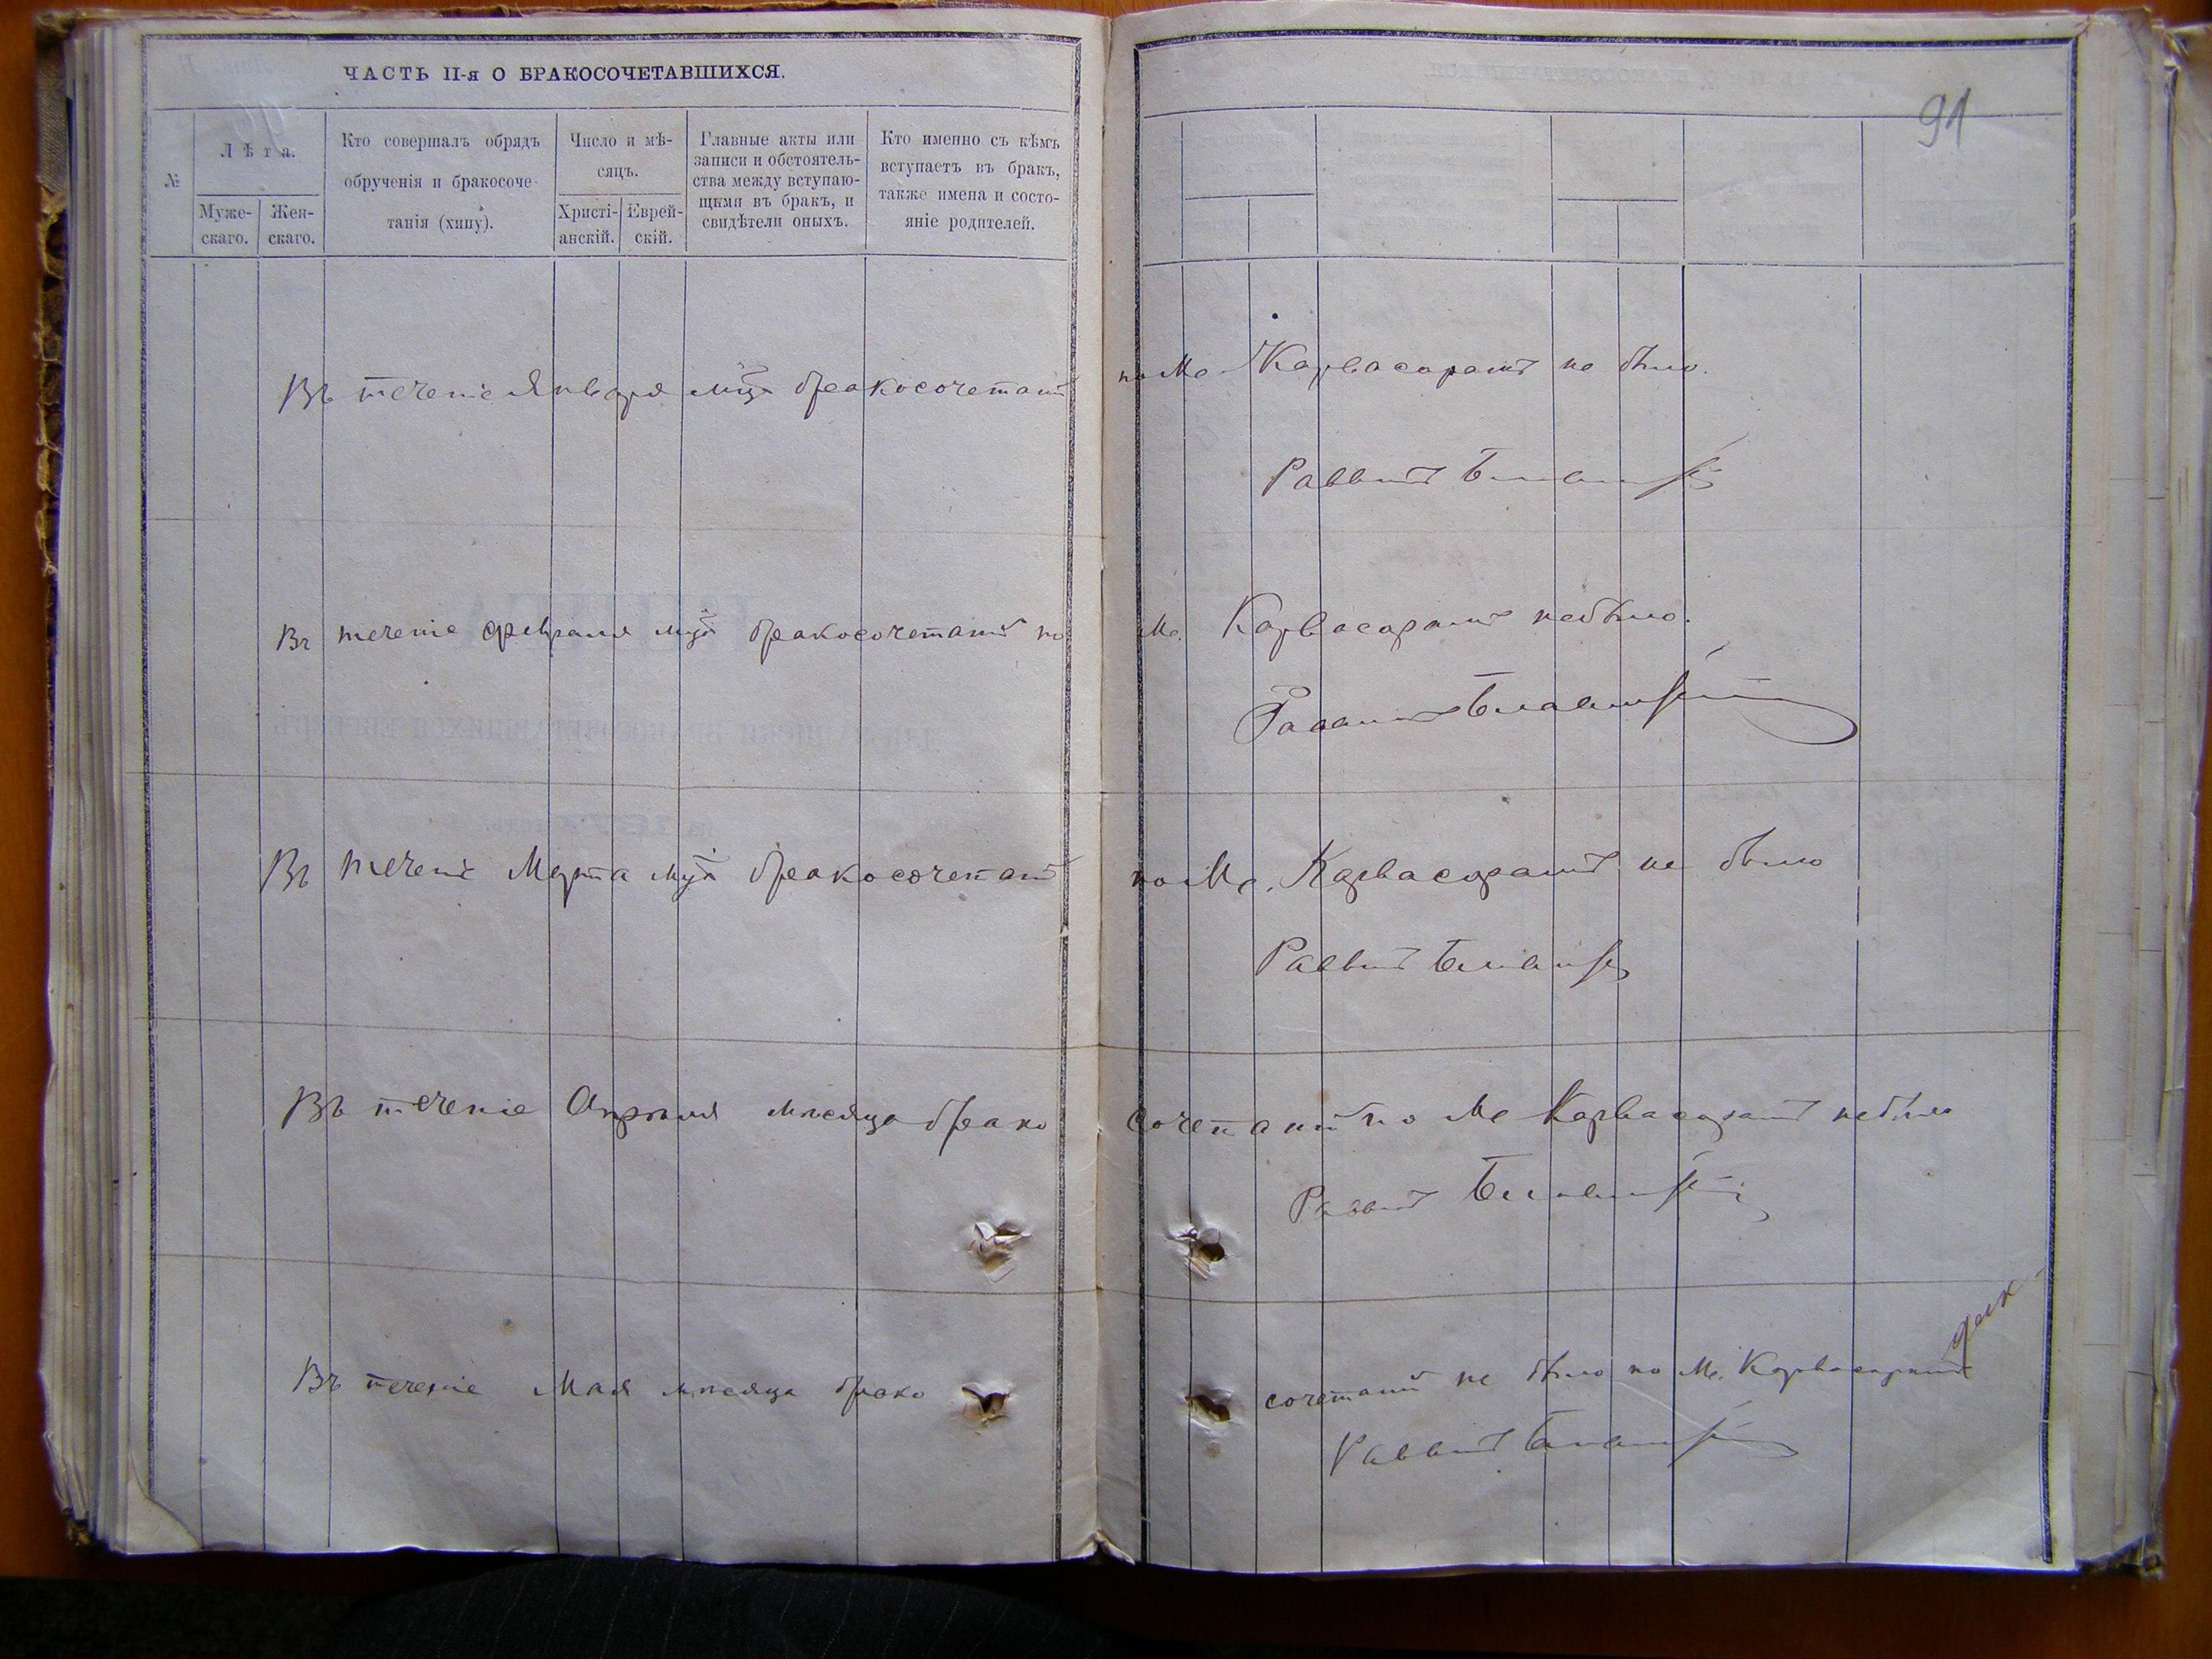 ЧАСТЬ II-я О БРАКОСОЧЕТАВШИХСЯ.
91
№
Лѣта.
Муже-
скаго.
Жен-
скаго.
Кто совершалъ обрядъ
обрученія и бракосоче-
танія (хипу).
Число и мѣ-
сяцъ.
Христі-
анскій.
Еврей-
скій.
Главные акты или
записи и обстоятель-
ства между вступаю-
щими въ бракъ, и
свидѣтели оныхъ.
Кто именно съ кѣмъ
вступаетъ въ бракъ,
также имена и состо-
яніе родителей.
Въ теченіе Января мца бракосочетаній по Ме Карвасарамъ не было.
Раввинъ
Въ теченіе февраля мца бракосочетаній по Ме. Карвасарамъ небыло.
Раввинъ
Въ теченіе Марта мца бракосочетаній по Ме. Карвасарамъ не было
Раввинъ
Въ теченіе Апрѣля мѣсяца бракосочетаній по Ме Карвасарамъ небыло
Раввинъ
Въ теченіе Мая мѣсяца бракосочетаній не было по Ме. Карвасарамъ
Раввинъ